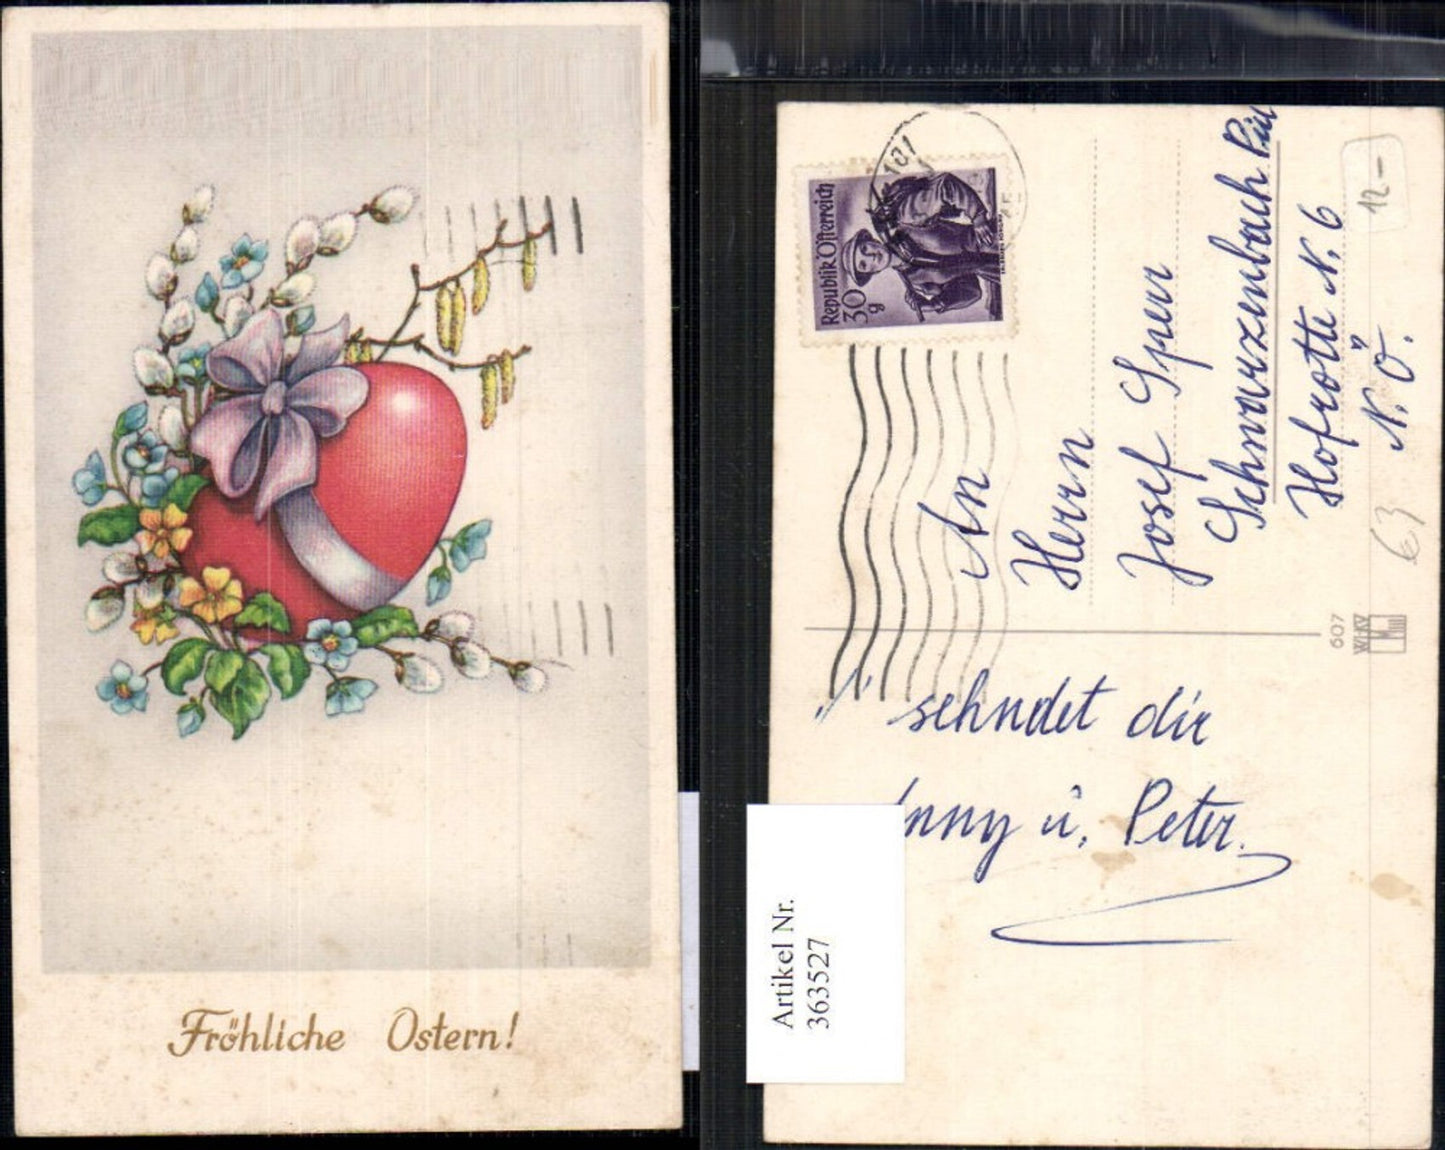 Fröhliche Ostern!
Republik Österreich
30 g
An
Herrn
Josef Spurr
Schwarzenbach
Hofrotte N. 6
N. Ö.
12-
€3
607
WHKV
sehndet dir
u, Peter.
Artikel Nr.
363527